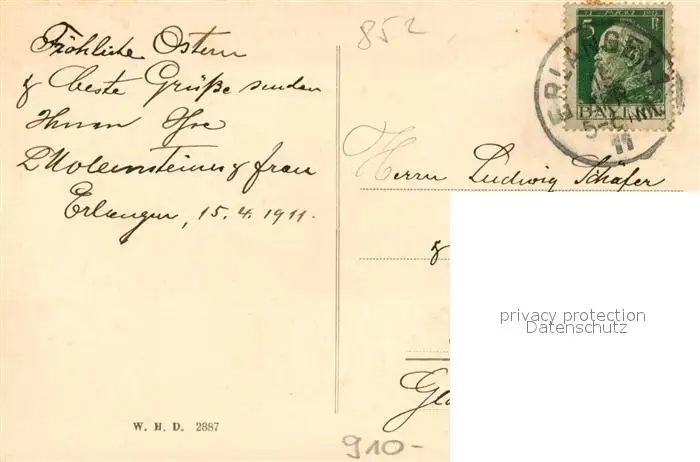 Fröhliche Ostern
& beste Grüße senden
Ihnen Ihre
& Frau
Erlangen, 15.4.1911.
W. H. D. 2887
852
5
BAYERN
ERLANGEN
11
Herrn Ludwig Schäfer
&
privacy protection
Datenschutz
910-